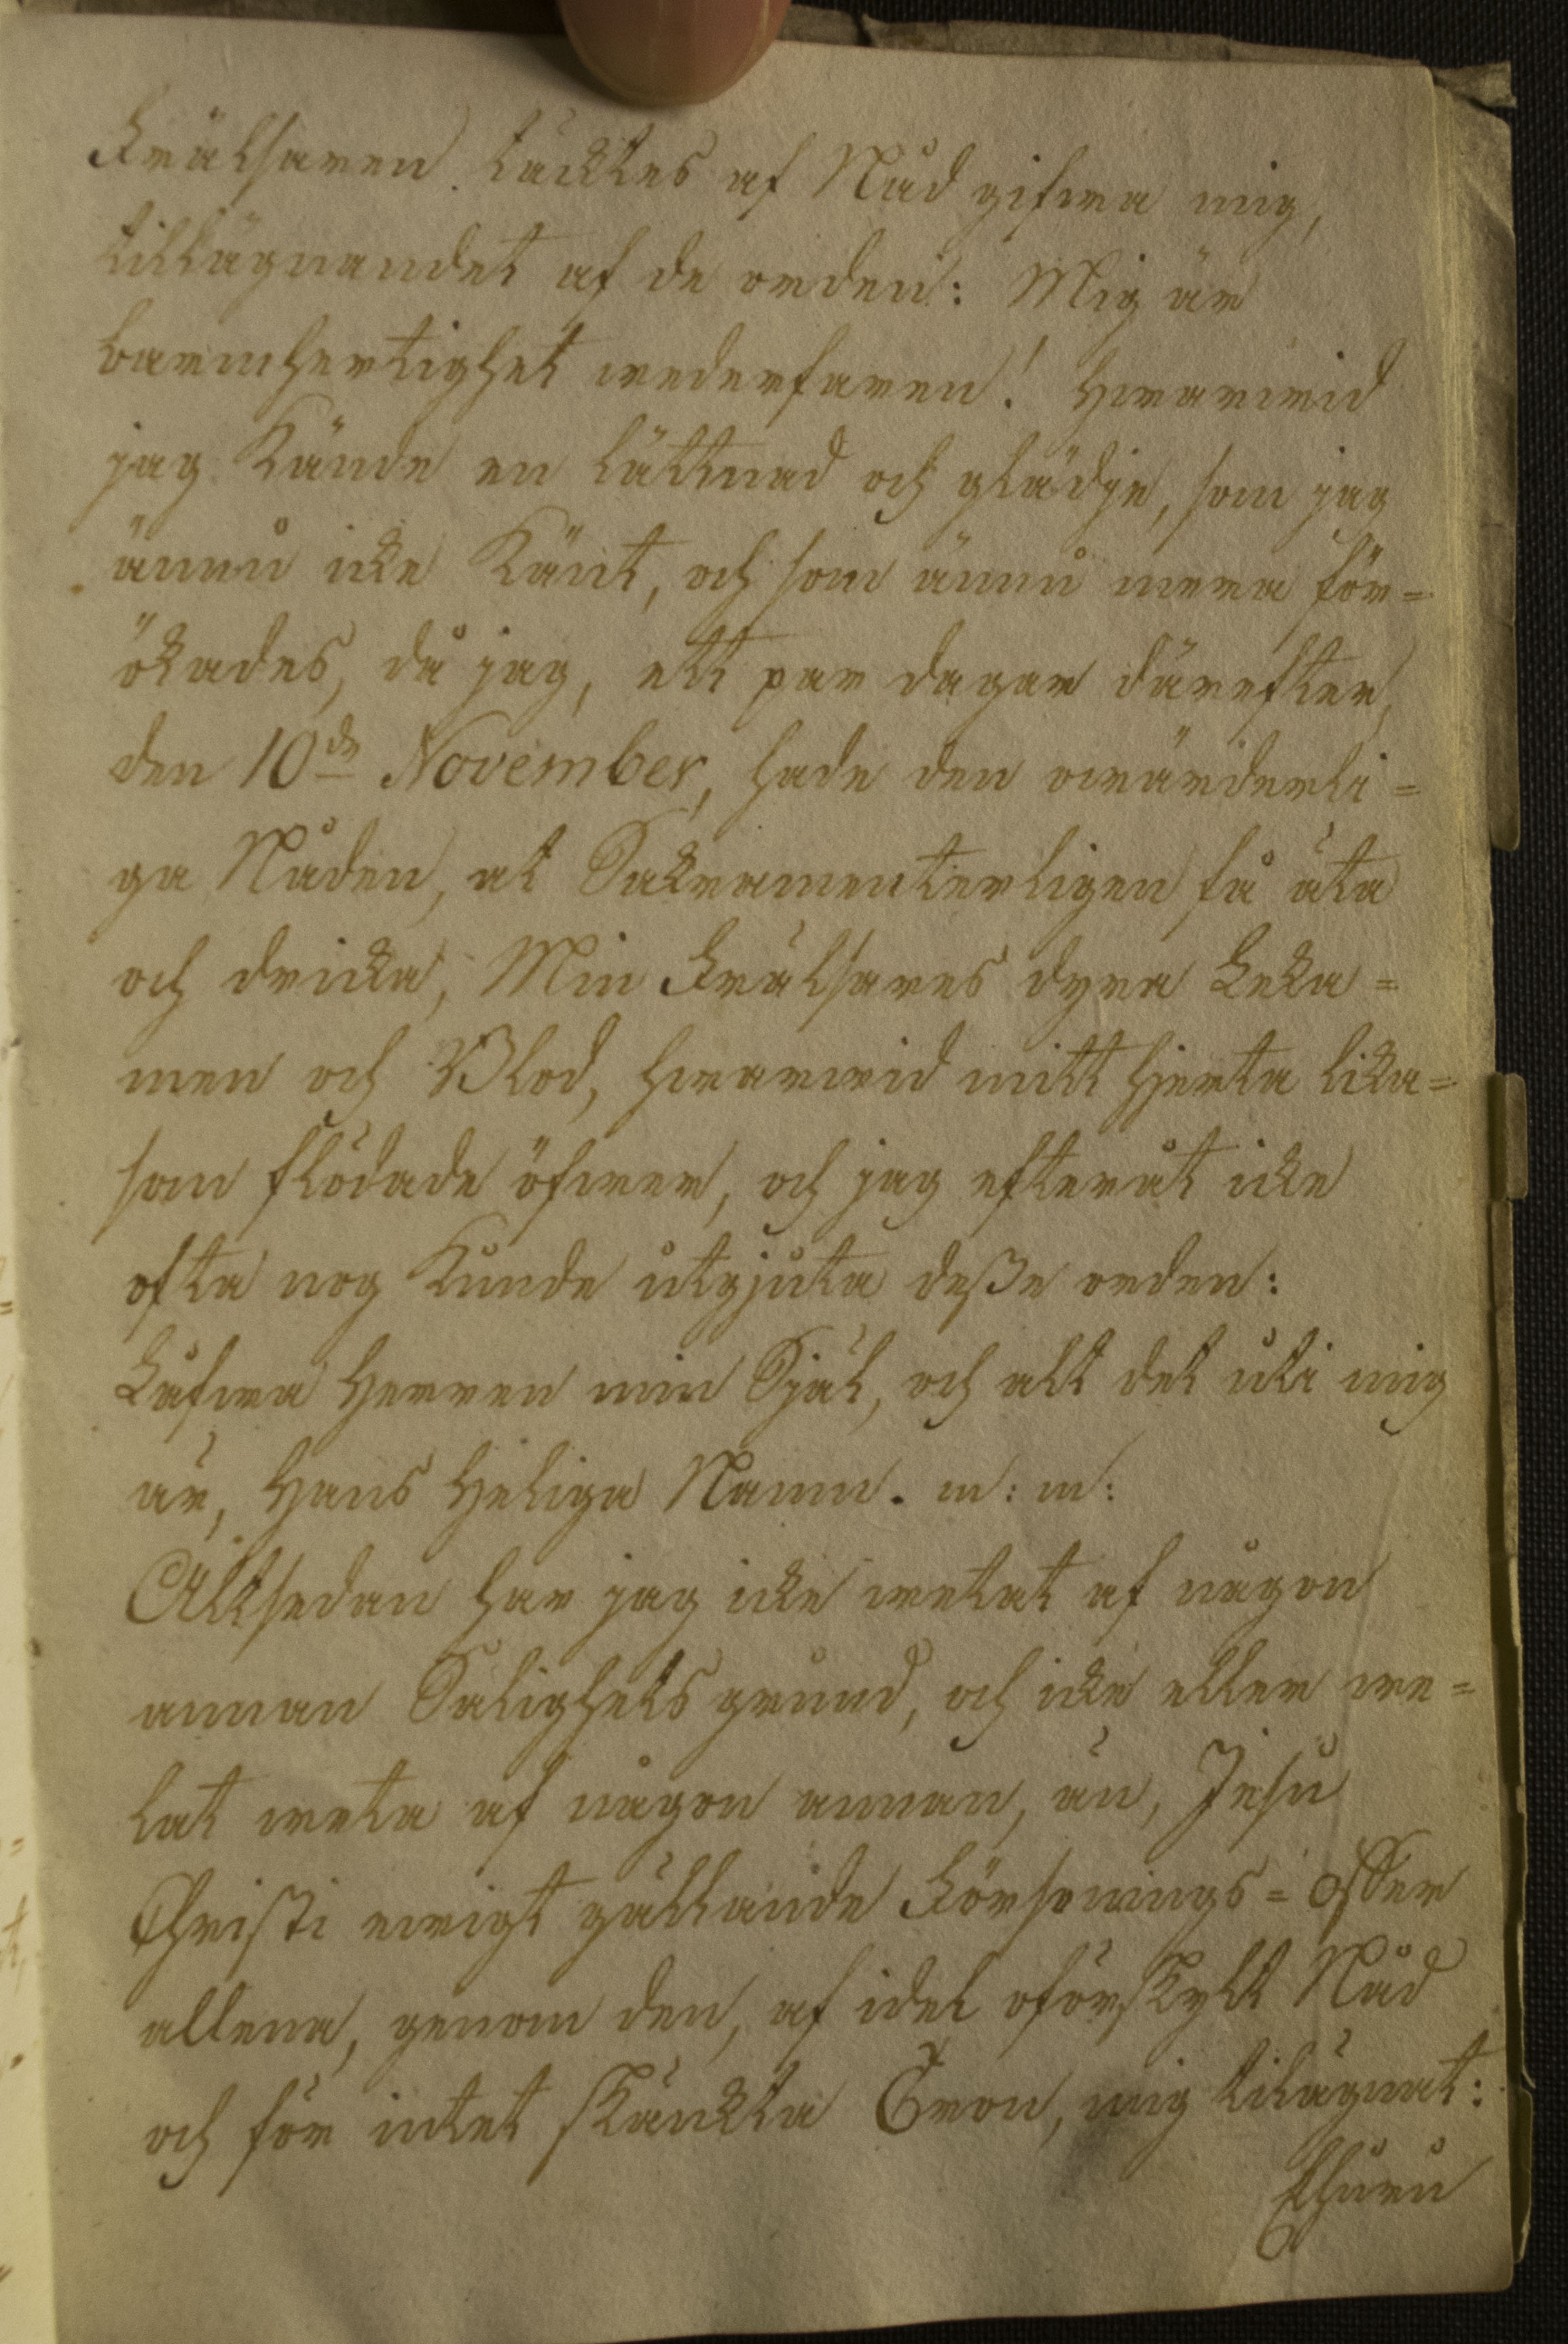 Frälsaren täcktes af Nåd gifwa mig,
tillägnandet af de orden: Mig är
barmhertighet wederfaren! Hwarwid
jag Kände en lättnad och glädje, som jag
ännu icke Känt, och som ännu mera för=
ökades, då jag, ett par dagar därefter,
den 10de November, hade den owärderli=
ga Nåden, at Sakramenterligen få äta
och dricka, Min Frälsares dyra Leka=
men och Blod, hwarwid mitt hjerta lika=
som flödade öfwer, och jag efteråt icke
ofta nog Kunde utgjuta deße orden:
Lofwa Herren min Själ, och alt det uti mig
är, Hans Heliga Namn. m: m:
Altsedan har jag icke wetat af någon
annan Salighets grund, och icke eller we=
lat weta af någon annan, än, Jesu
Christi ewigt gällande Försonings=Offer
allena, genom den, af idel oförskylt Nåd
och för intet skänkta Tron, mig tilägnat:
Ehuru